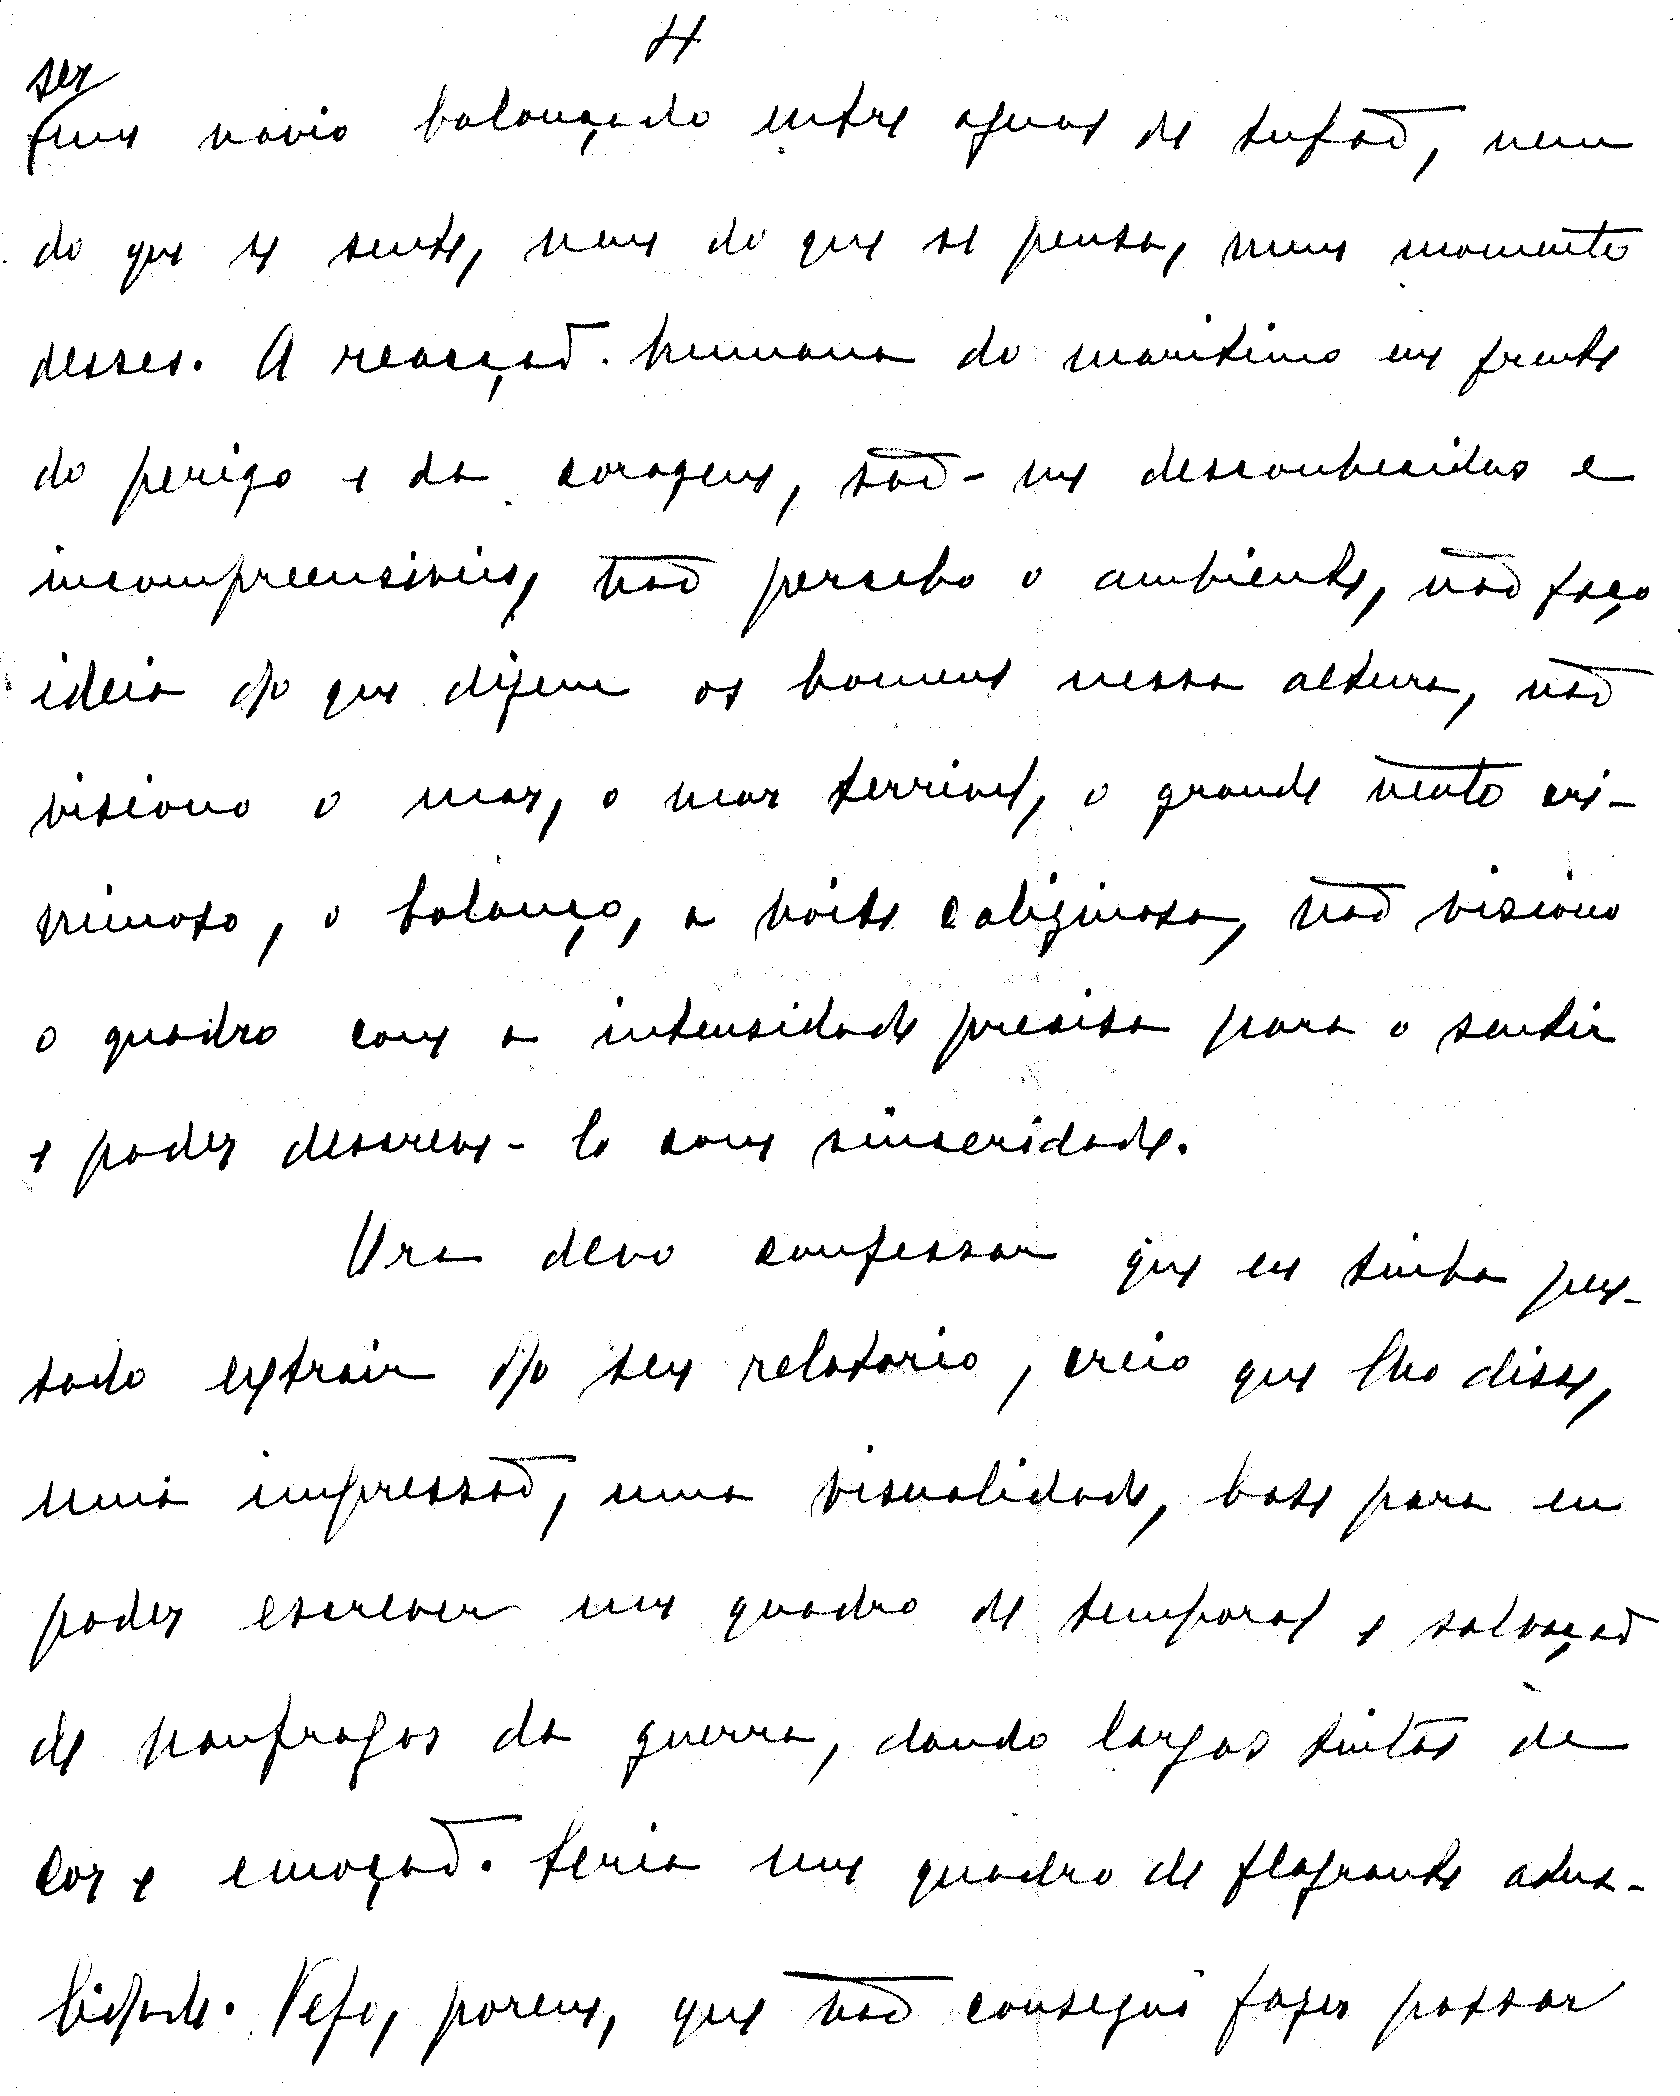 4
ser
um navio balançado entre aguas de tufaõ, nem
do que se sente, nem do que se pensa, num momento
desses. A reacçaõ humana do maritimo em frente
do perigo e da coragem, saõ-me desconhecidas e
incompreensiveis, naõ percebo o ambiente, naõ faço
ideia do que dizem os homens nessa altura, naõ
visiono o mar, o mar terrivel, o grande vento cri-
minoso, o balanço, a noite caliginosa, naõ visiono
o quadro com a intensidade precisa para o sentir
e poder descreve-lo com sinceridade.
Ora devo confessar que eu tinha pen-
sado extrair do seu relatorio, creio que lho disse,
uma impressaõ, uma visualidade, base para eu
poder escrever um quadro de temporal e salvaçaõ
de naufragos da guerra, dando largas tintas de
cor e emoçaõ. Seria um quadro de flagrante actua-
lidade. Vejo, porem, que naõ consegui fazer passar